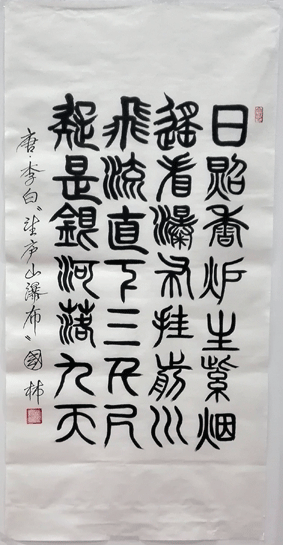 日照香炉生紫烟
遥看瀑布挂前川
飞流直下三千尺
疑是银河落九天
唐·李白“望庐山瀑布”国林